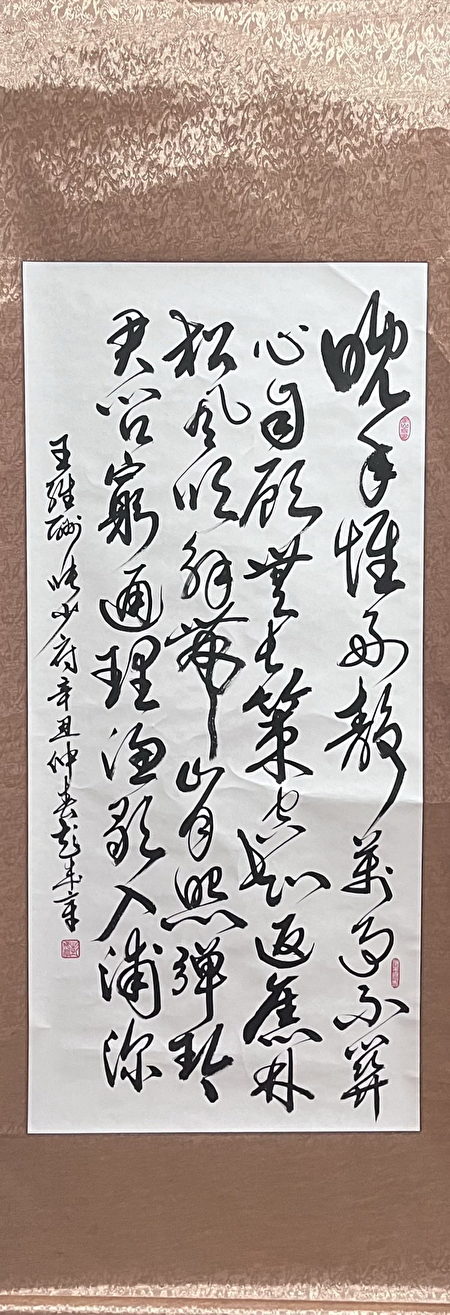 晚年惟好靜萬事不關
心自顧無長策空知返舊林
松風吹解帶山月照彈琴
君問窮通理漁歌入浦深
王維酬張少府辛丑仲春